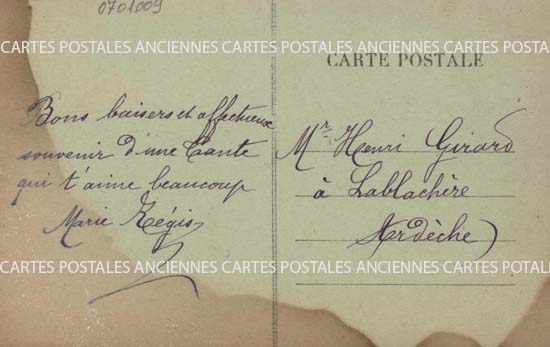 0701009
CARTES POSTALES ANCIENNES CARTES POSTALES ANCIENNES CARTES POSTALES
CARTE POSTALE
Bons baisers et affectueux
souvenir d'une Tante
qui t'aime beaucoup
Marie Régis
Mr Henri Girard
à Lablachère
Ardèche
CARTES POSTALES ANCIENNES CARTES POSTALES ANCIENNES CARTES POSTALES